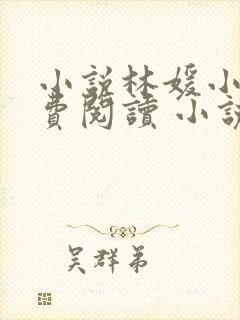 小説林媛小
費閱讀 小說
吳群弟